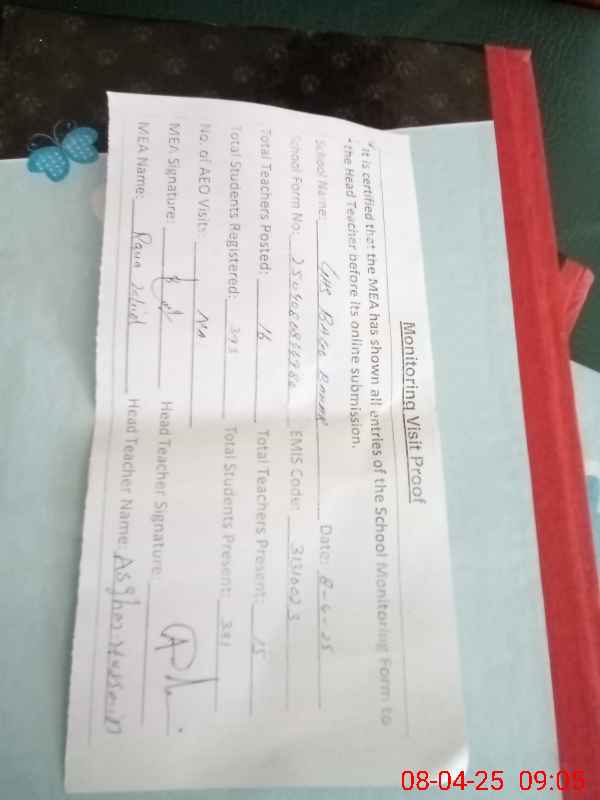 Monitoring Visit Proof
It is certified that the MEA has shown all entries of the School Monitoring Form to
the Head Teacher before its online submission.
School Name: GHS Date: 8-4-25
School Form No: EMIS Code: 31310023
Total Teachers Posted: 16 Total Teachers Present: 15
Total Students Registered: 393 Total Students Present: 391
No. of AEO Visits: NA
MEA Signature: Head Teacher Signature:
MEA Name: Rana Head Teacher Name: Asghar Hussain
08-04-25 09:05